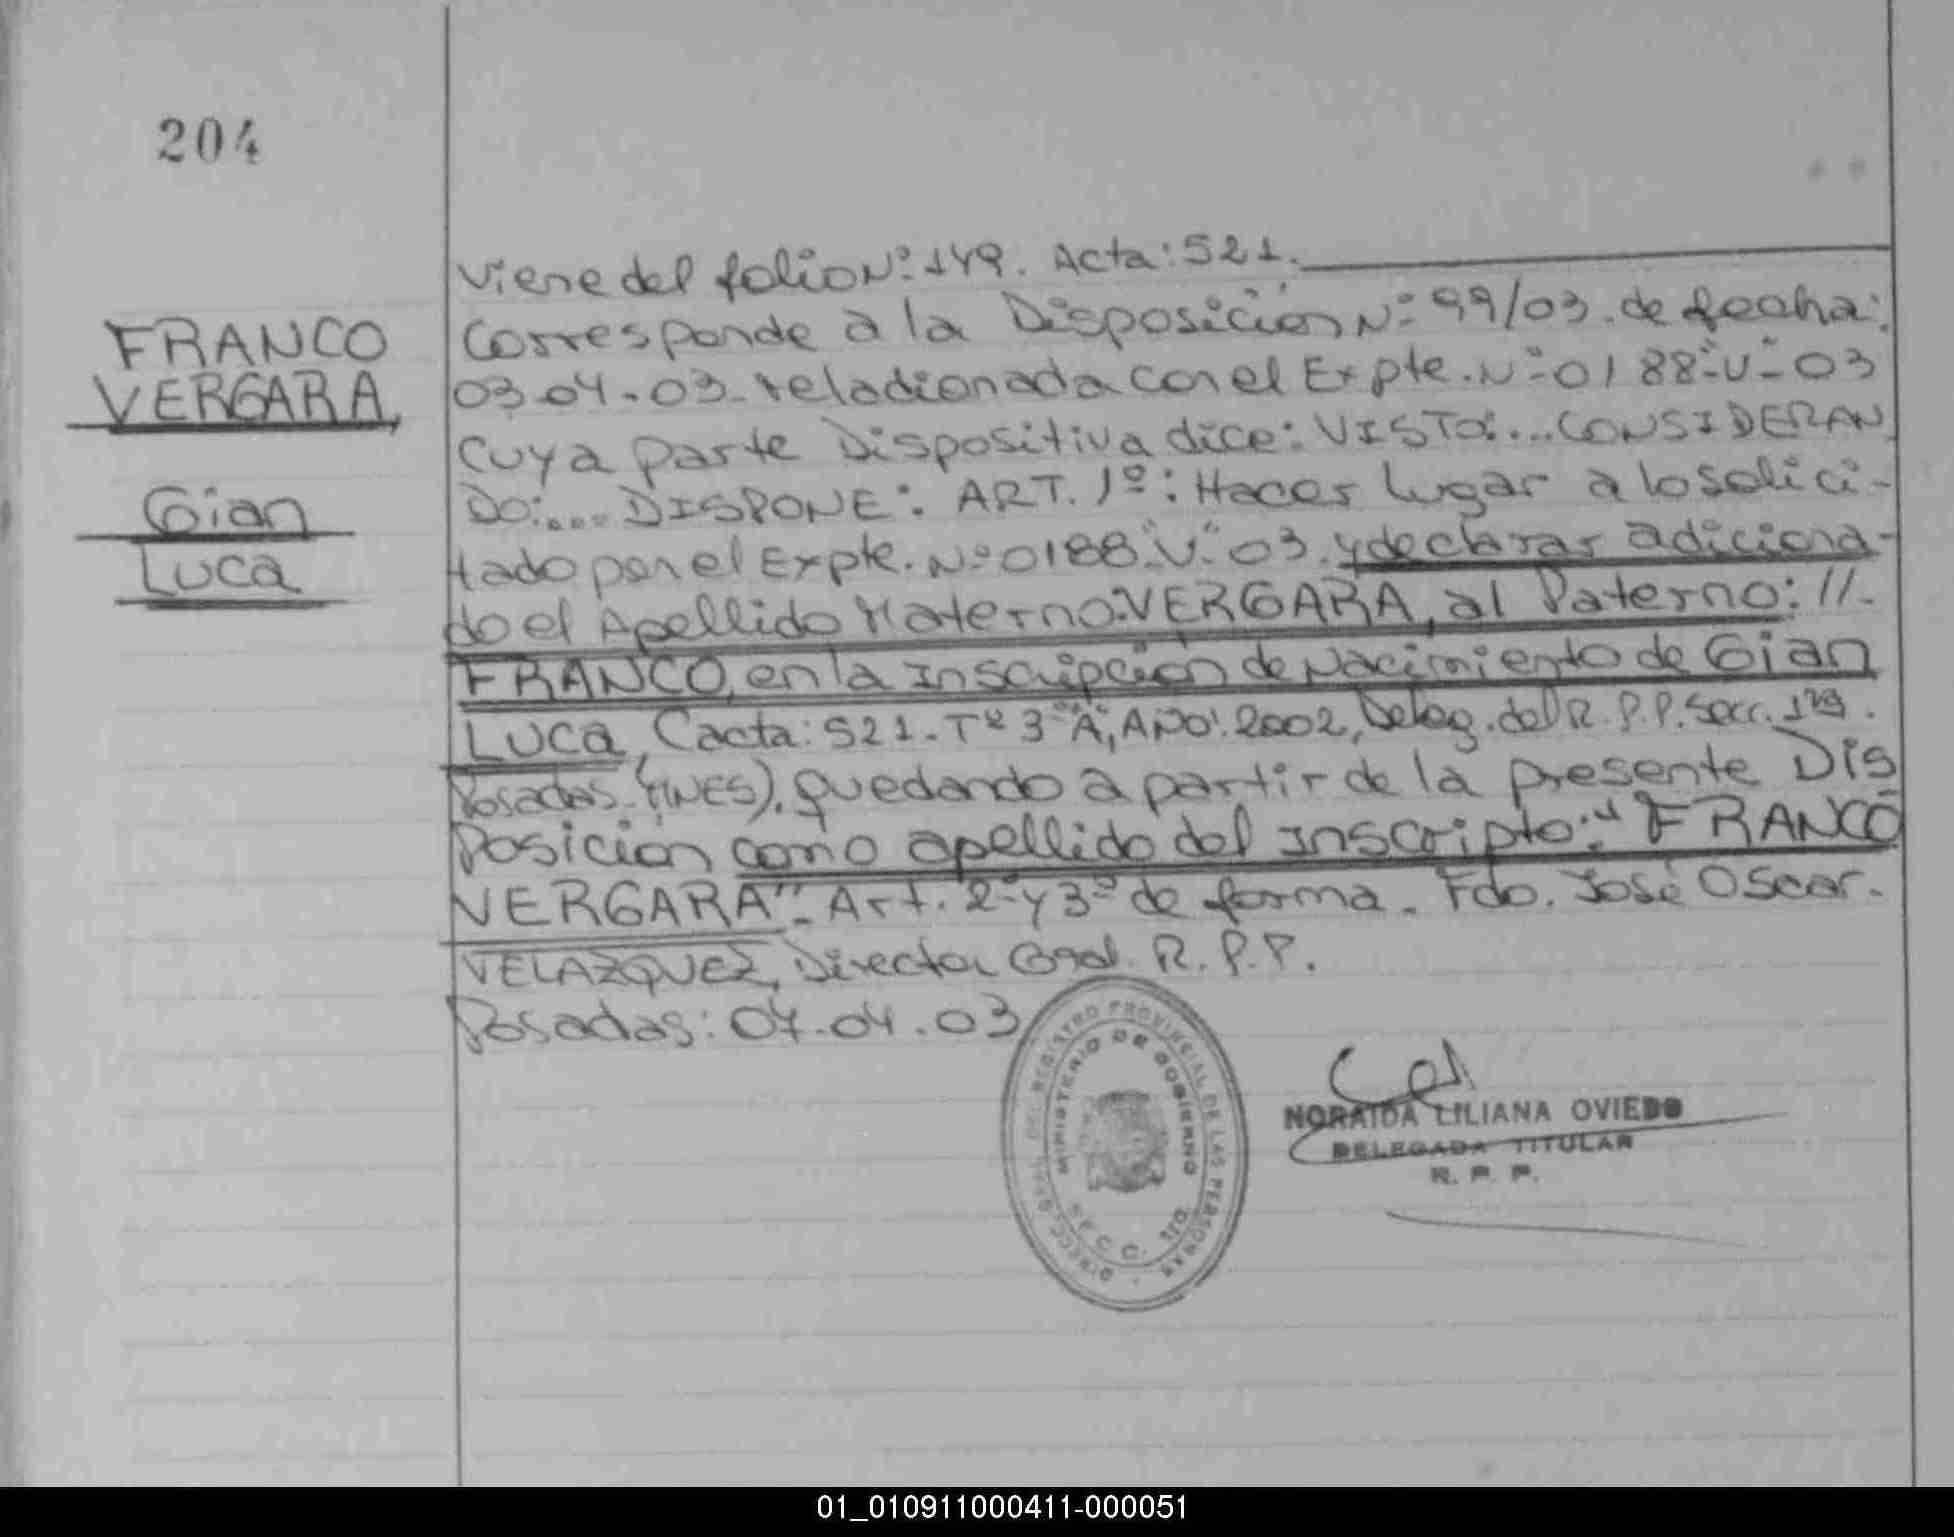 204
FRANCO
VERGARA,
Gian
Luca
Viene del folio Nº: 149. Acta: 521.
Corresponde a la Disposición Nº 99/03. de fecha:
03-04-03. relacionada con el Expte. Nº 0188-"V"-03
cuya parte Dispositiva dice: VISTO:... CONSIDERAN
DO:.... DISPONE: ART. 1º: Hacer lugar a lo solici-
tado por el Expte. Nº 0188-"V"-03. y declarar adiciona-
do el Apellido Materno: VERGARA, al Paterno: //-
FRANCO, en la Inscripción de Nacimiento de Gian
LUCA, Cacta: 521. Tº 3 "A", AÑO: 2002, Deleg. del R.P.P. Secc. 1ra.
Posadas. (MNES). quedando a partir de la presente Dis
Posición como apellido del Inscripto: "FRANCO
VERGARA". Art. 2º y 3º de forma. Fdo. José Oscar.
VELAZQUEZ, Director Gral. R.P.P.
Posadas: 07.04.03
DIRECC. GRAL. DEL REGISTRO PROVINCIAL DE LAS PERSONAS
MINISTERIO DE GOBIERNO
SECC.
NORAIDA LILIANA OVIEDO
DELEGADA TITULAR
R. P. P.
01_010911000411-000051